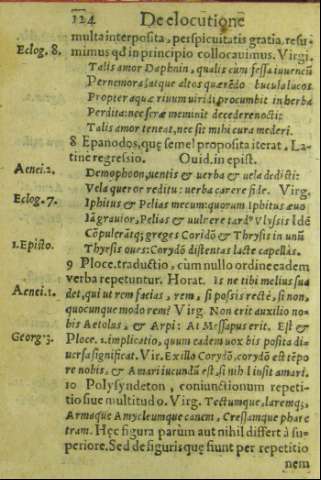 124 De elocutione
multa interposita, perspicuitatis gratia, resu
Eclog. 8. mimus qđ in principio collocauimus. Virgi.
Talis amor Daphnin, qualis cum fessa iuuencū
Per nemora, atque altos quærēdo bucula lucos
Propter aquæ riuum uiridi procumbit in herba
Perdita: nec seræ meminit decedere nocti:
Talis amor teneat, nec sit mihi cura mederi.
8 Epanodos, que semel proposita iterat. La-
tine regressio. Ouid. in epist.
Aenei. 2. Demophoon, uentis & uerba & uela dedisti:
Vela queror reditu: uerba carere fide. Virg.
Eclog. 7. Iphitus & Pelias mecum: quorum Iphitus æuo
Iā grauior, Pelias & uulnere tardꝰ Vlyssis Idē
Cōpulerātq; greges Coridō & Thyrsis in unū
1. Episto. Thyrsis oues: Corydō distentas lacte capellas.
9 Ploce, traductio, cùm nullo ordine eadem
verba repetuntur. Horat. Is ne tibi melius sua
Aenei. 1. det, qui ut rem facias, rem, si possis rectè, si non,
quocunque modo rem? Virg. Non erit auxilio no-
bis Aetolus, & Arpi: At Messapus erit. Est &
Georg. 3. Ploce. i. implicatio, quum eadem uox bis posita di-
uersa significat. Vir. Ex illo Corydō, corydō est tēpo
re nobis, & Amari iucundū est, si nihil insit amari.
10 Polysyndeton, coniunctionum repeti-
tio siue multitudo. Virg. Tectumque, laremq;,
Armaque Amycleumque canem, Cressamque phare
tram. Hęc figura parum aut nihil differt à su-
periore. Sed de figuris quę fiunt per repetitio
nem